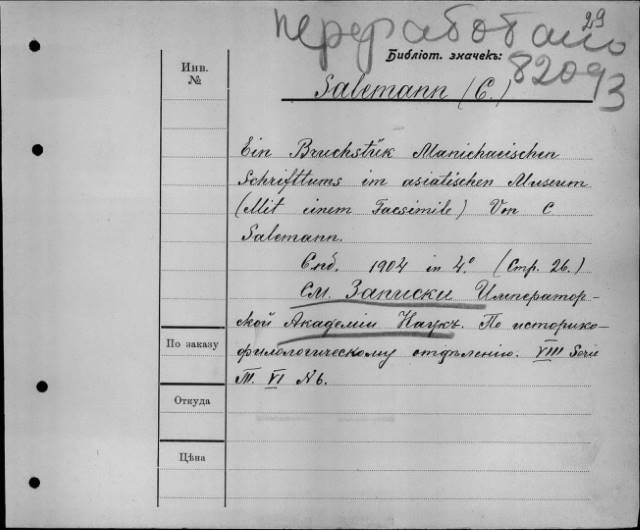 переработано
29
Библіот. значекъ:
82093
Инв.
№
Salemann (C.)
Ein Bruchstük Manichaeischen
Schrifttums im asiatischen Museum
(Mit einem Facsimile) Von C
Salemann.
Спб. 1904 in 4.º (Стр. 26.)
См. Записки Император-
ской Академіи Наукъ. По историко-
филологическому отдѣленію. VIII Serie
Т. VI № 6.
По заказу
Откуда
Цѣна